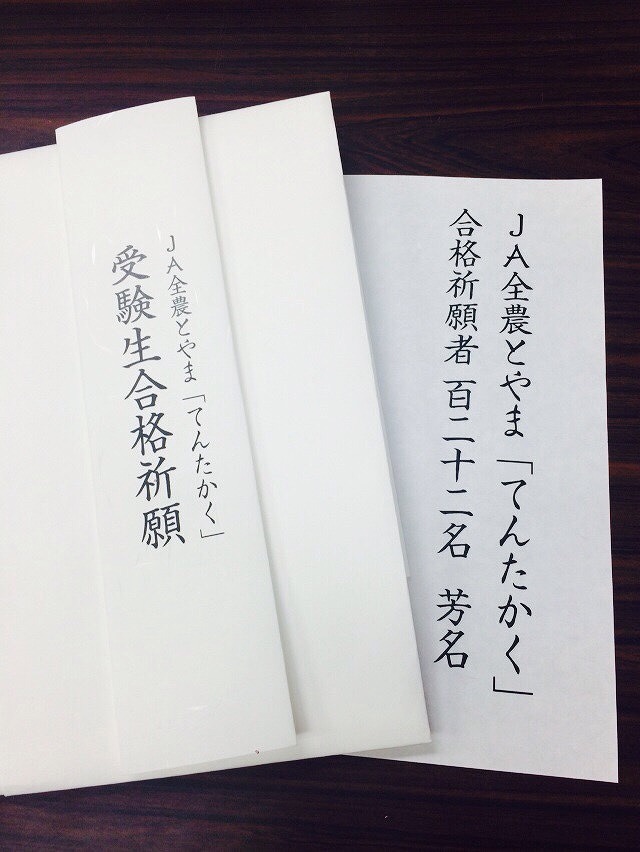 ＪＡ全農とやま「てんたかく」
受験生合格祈願
ＪＡ全農とやま「てんたかく」
合格祈願者 百二十二名　芳名